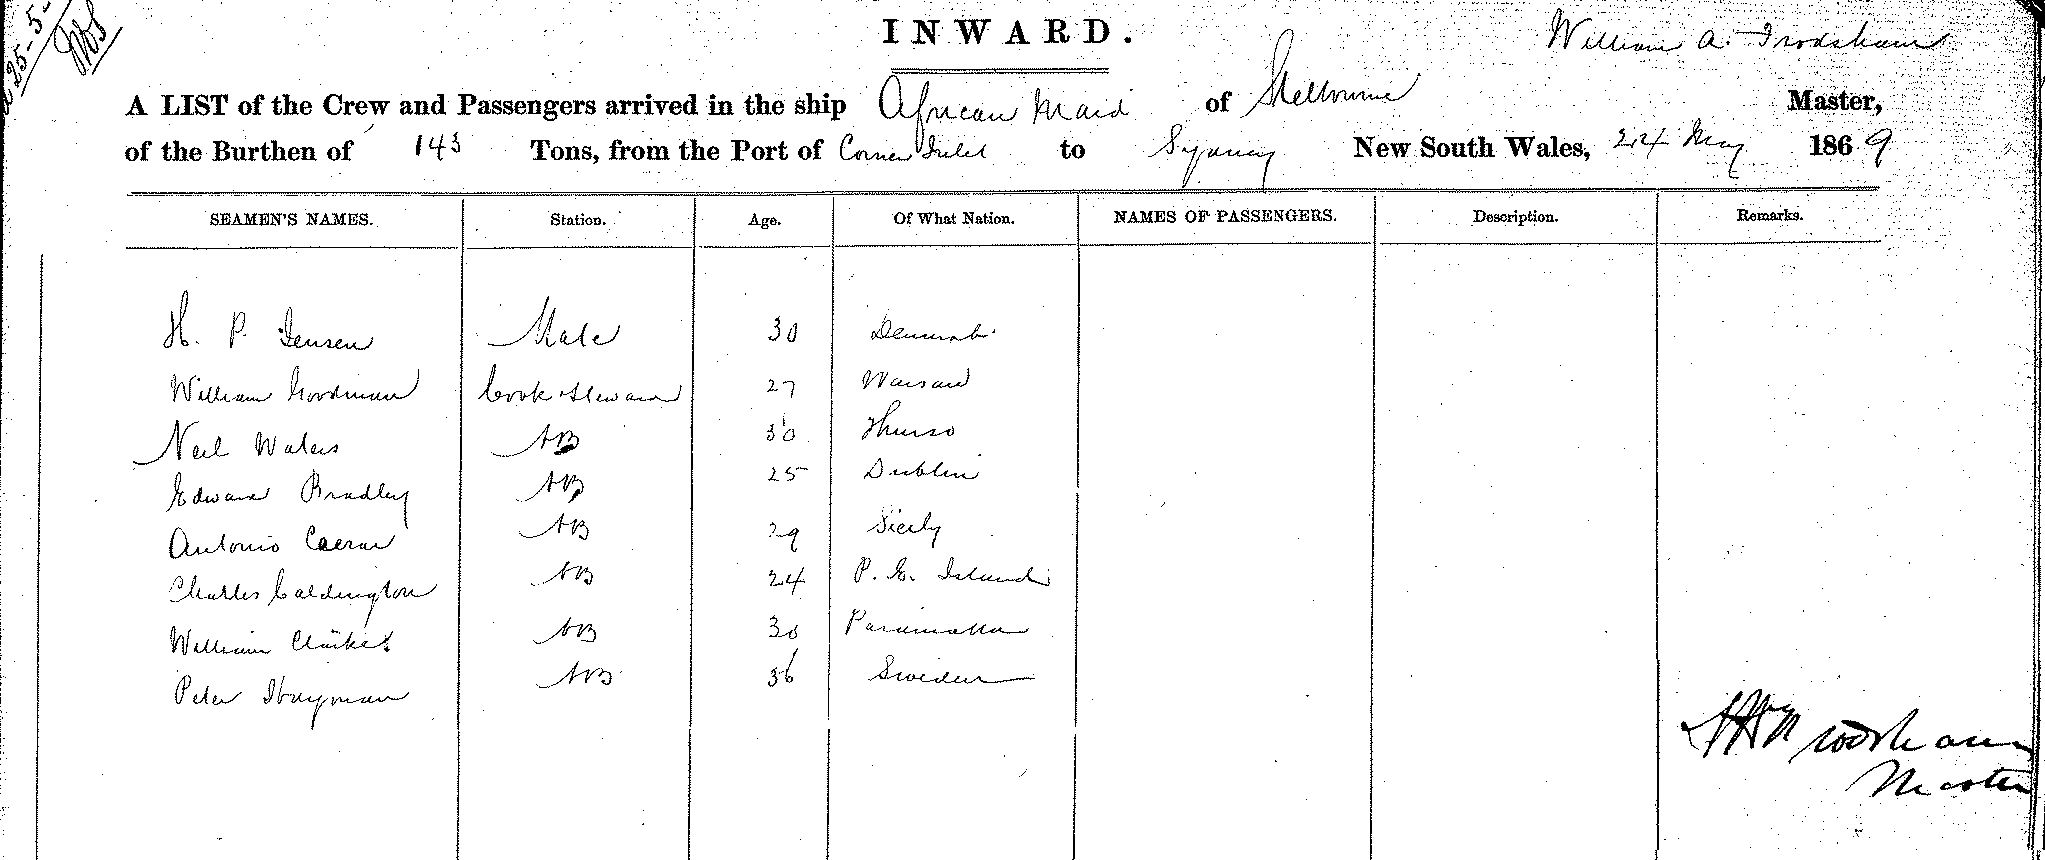 25-5-
INWARD.
William A. Frodsham
A LIST of the Crew and Passengers arrived in the ship African Maid of Melbourne Master,
of the Burthen of 143 Tons, from the Port of Corner Inlet to Sydney New South Wales, 24 May 1869
SEAMEN'S NAMES. Station. Age. Of What Nation. NAMES OF PASSENGERS. Description. Remarks.
H. P. Jensen Mate 30 Denmark
William Goodman Cook & Steward 27 Warsaw
Neil Waters AB 30 Thurso
Edward Bradley AB 25 Dublin
Antonio AB 29 Sicily
Charles Caldington AB 24 P. E. Island
William Clarke AB 30 Paramatta
Peter AB 36 Sweden
Frodsham
Master